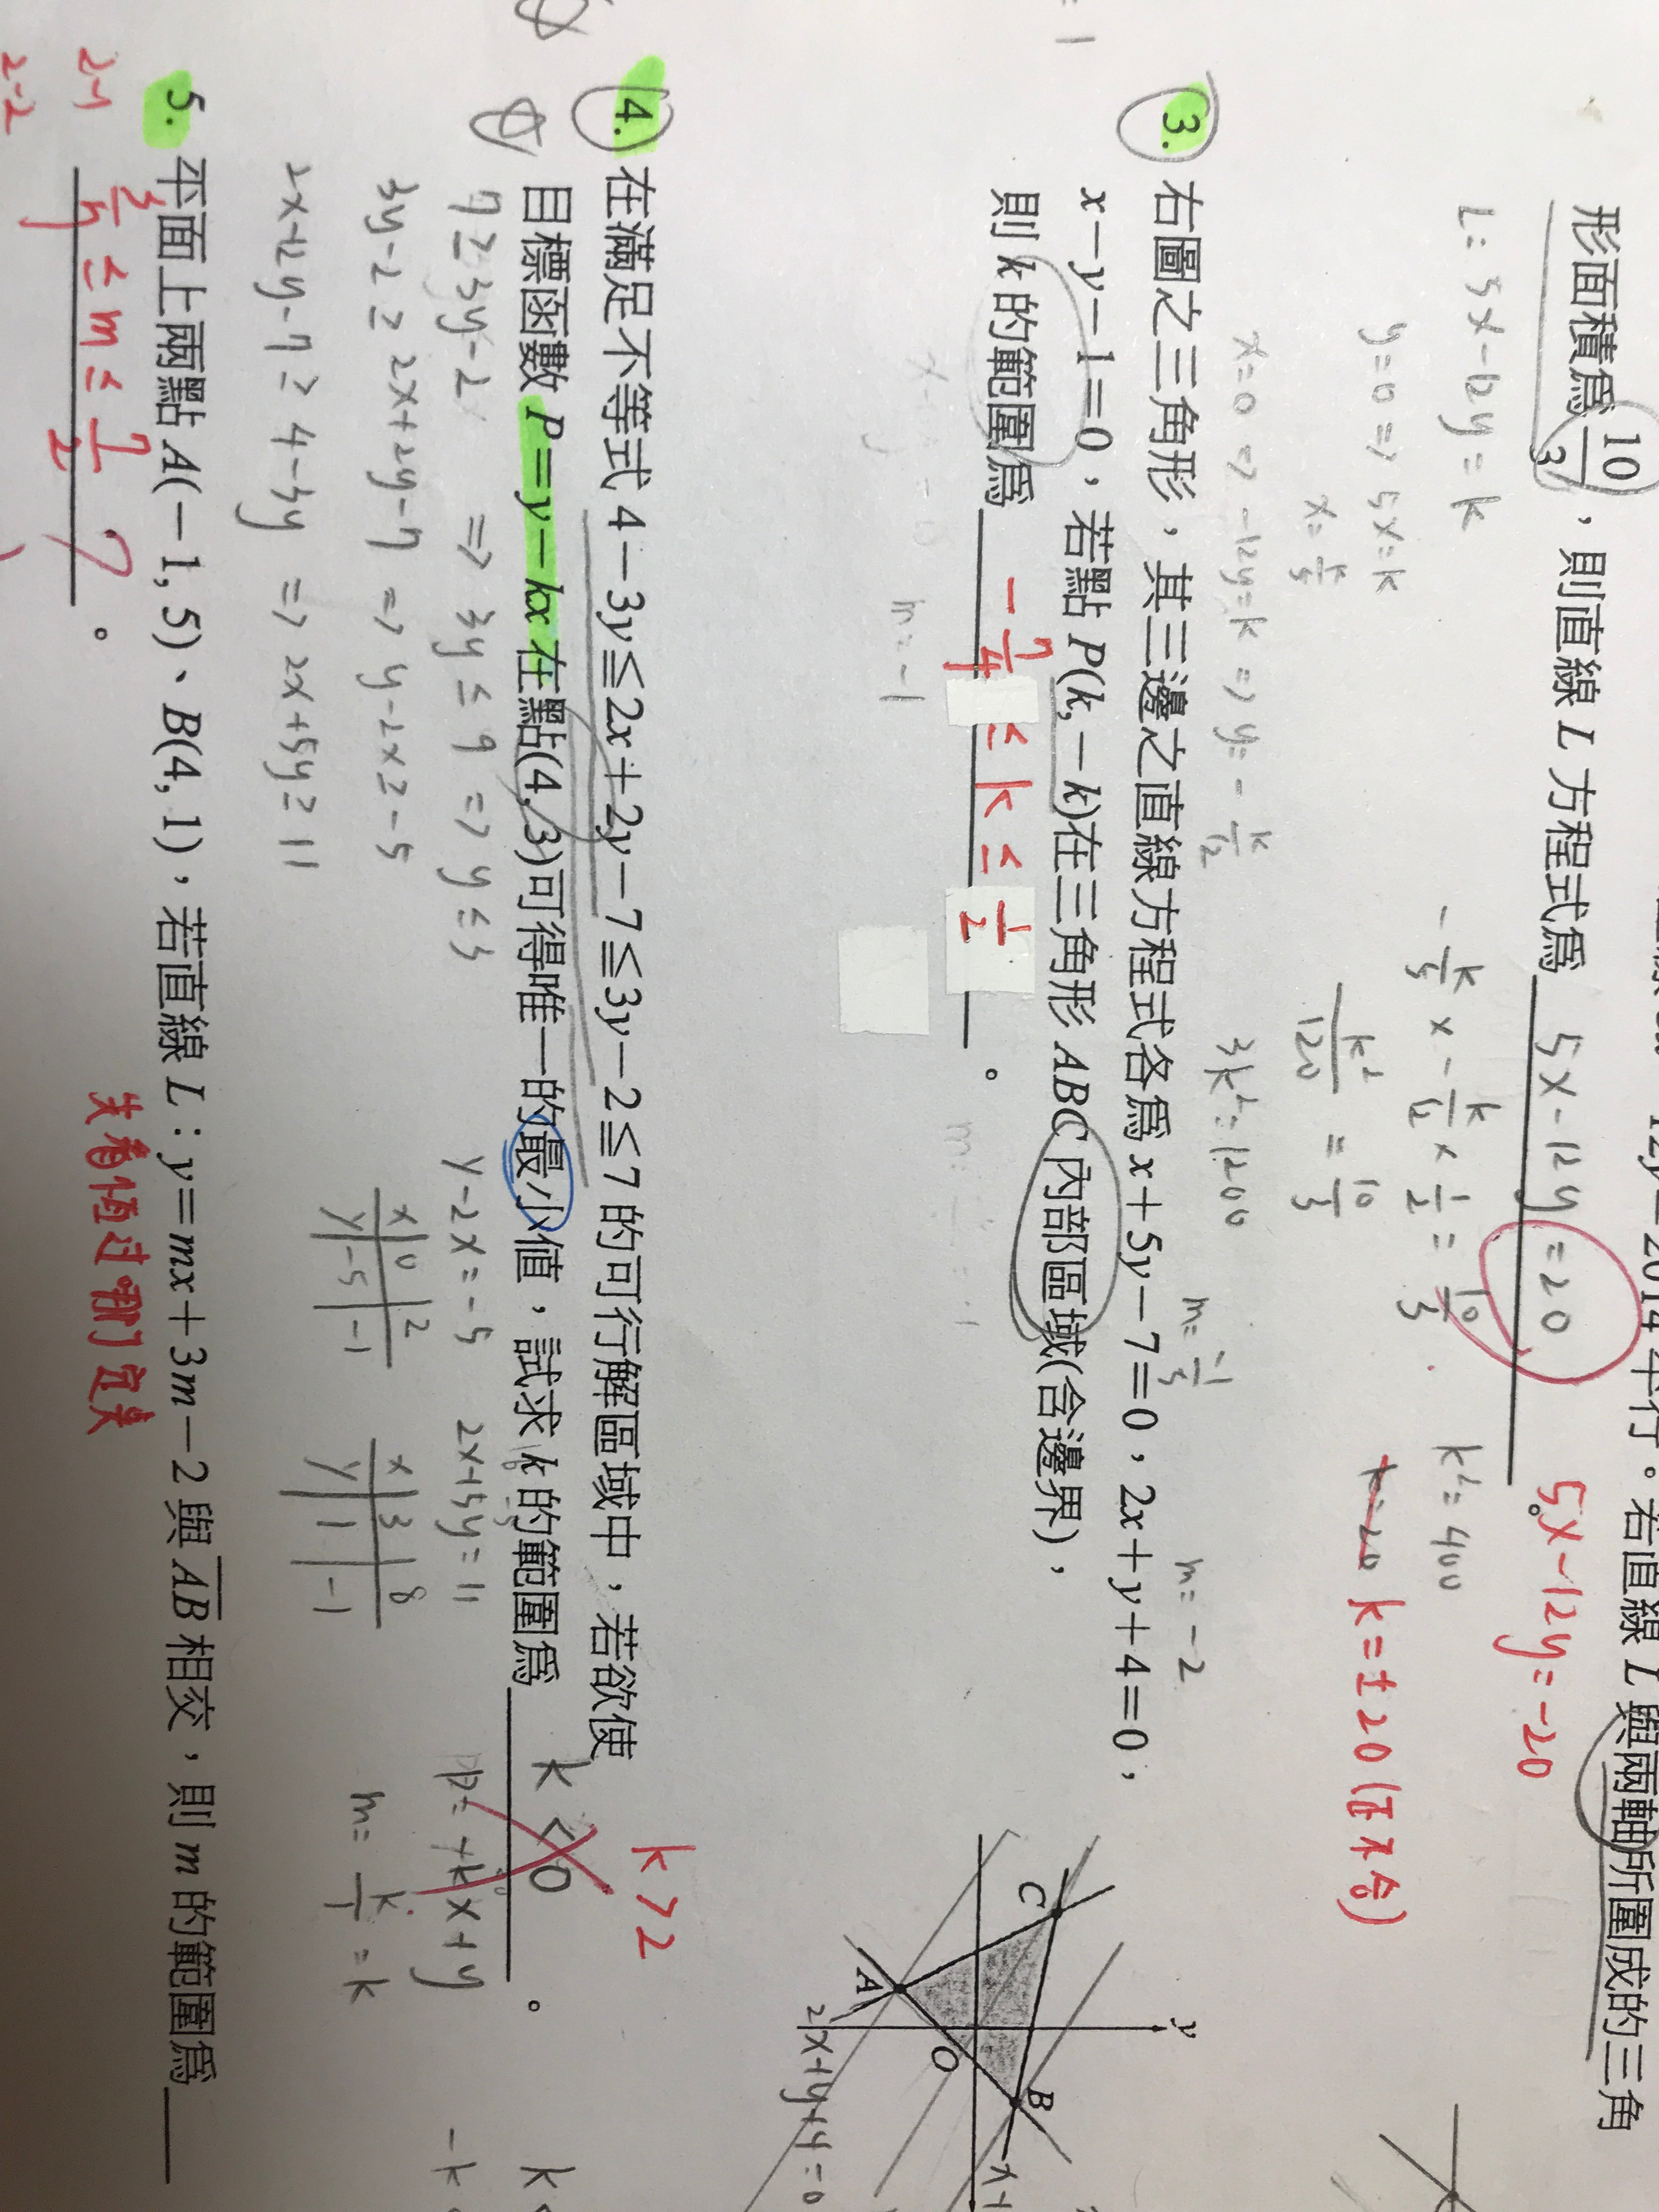 12y=2014平行。若直線 L 與兩軸所圍成的三角
形面積為 10/3,則直線 L 方程式為 5x-12y=20 。
5x-12y=-20
L: 5x-12y=k
y=0 => 5x=k
x=k/5
x=0 => -12y=k => y=-k/12
-k/5 x -k/12 x 1/2 = 10/3
k²/120 = 10/3
3k²=1200
k²=400
k=20 k=±20(正不合)
m=-1/5 m=-2
3. 右圖之三角形,其三邊之直線方程式各為 x+5y-7=0,2x+y+4=0,
x-y-1=0,若點 P(k,-k)在三角形 ABC 內部區域(含邊界),
則 k 的範圍為 -7/4 ≤ k ≤ 1/2 。
m=-1
y
C
B
A
O
2x+y+4=0
4. 在滿足不等式 4-3y≦2x+2y-7≦3y-2≦7 的可行解區域中,若欲使
目標函數 P=y-kx 在點(4, 3)可得唯一的最小值,試求 k 的範圍為 k<0 。
k>2
7≥3y-2 => 3y≤9 => y≤3
3y-2≥2x+2y-7 => y-2x≥-5
2x+2y-7≥4-3y => 2x+5y≥11
y-2x=-5 2x+5y=11
x 0 2
y -5 -1
x 3 8
y 1 -1
m=k/1=k
5. 平面上兩點 A(-1, 5)、B(4, 1),若直線 L:y=mx+3m-2 與 AB 相交,則 m 的範圍為
3/7 ≤ m ≤ 7/2 ? 。
先看恆过哪个定美